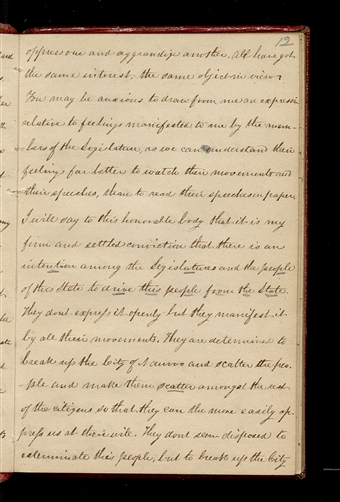 12
oppress one and aggrandize another. All have got
the same interest, the same object in view.
You may be anxious to draw from me an expression
relative to feelings manifested to me by the mem-
bers of the Legislature, as we can understand their
feelings far better to watch their movements and
their speeches, than to read their speeches on paper
I will say to this honorable body that it is my
firm and settled conviction that there is an
intention among the Legislatures and the people
of the State to drive this people from the State.
They dont express it openly but they manifest it
by all their movements. They are determined to
break up the City of Nauvoo and scatter the peo-
-ple and make them scatter amongst the rest
of the citizens so that they can the more easily op-
press us at their will. They dont seem disposed to
exterminate this people, but to break up the City